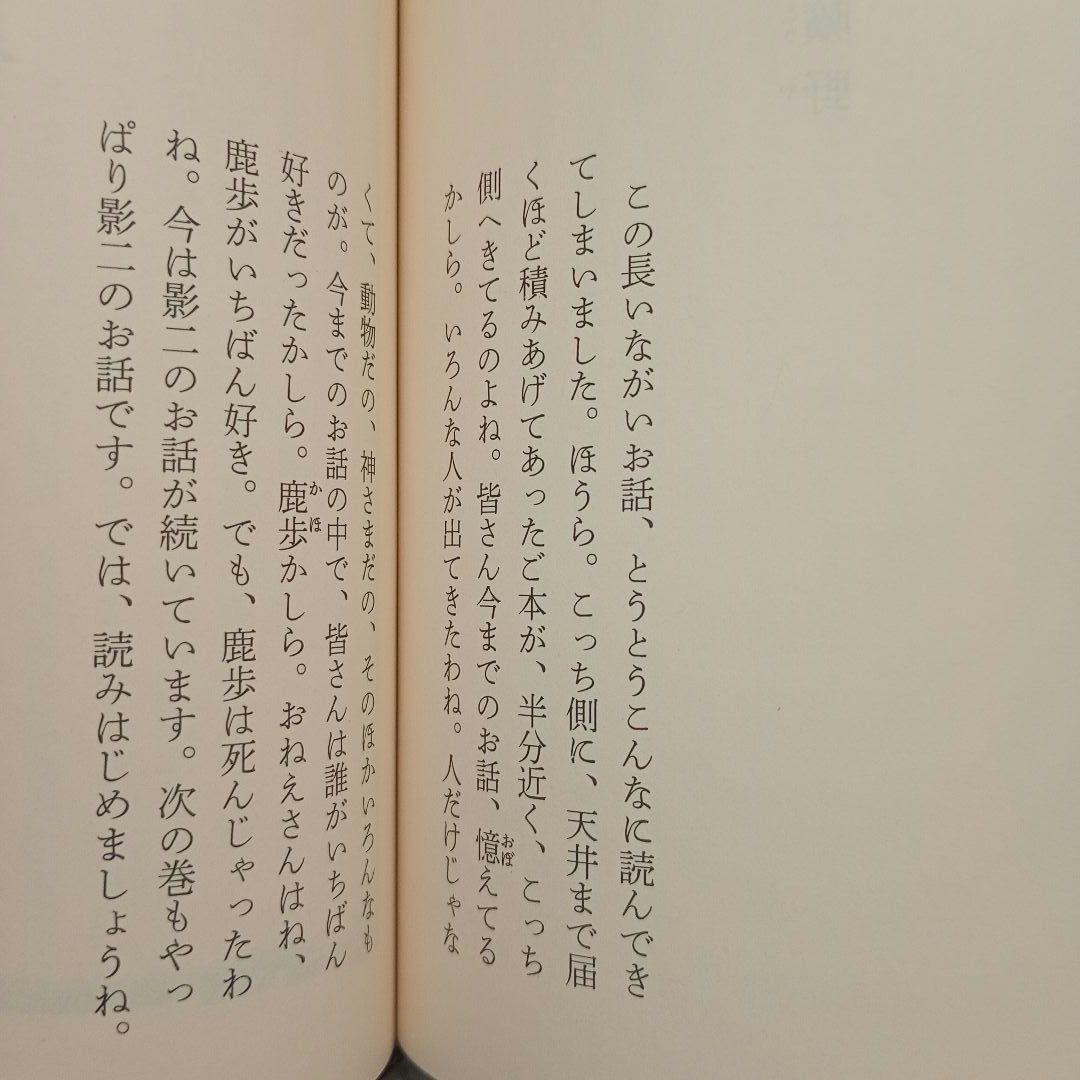 この長いながいお話、とうとうこんなに読んでき
てしまいました。ほうら。こっち側に、天井まで届
くほど積みあげてあったご本が、半分近く、こっち
側へきてるのよね。皆さん今までのお話、憶えてる
かしら。いろんな人が出てきたわね。人だけじゃな
くて、動物だの、神さまだの、そのほかいろんなも
のが。今までのお話の中で、皆さんは誰がいちばん
好きだったかしら。鹿歩かしら。おねえさんはね、
鹿歩がいちばん好き。でも、鹿歩は死んじゃったわ
ね。今は影二のお話が続いています。次の巻もやっ
ぱり影二のお話です。では、読みはじめましょうね。